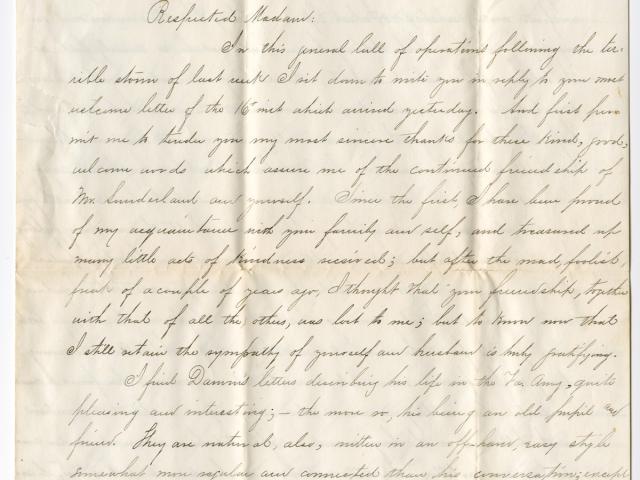 Respected Madam:
In this general lull of operations following the ter-
rible storm of last week I sit down to write you in reply to your most
welcome letter of the 16" inst which arrived yesterday. And first per-
mit me to tender you my most sincere thanks for these kind, good,
welcome words which assure me of the continued friendship of
Mr. Sunderland and yourself. Since the first, I have been proud
of my acquaintance with your family and self, and treasured up
many little acts of kindness received; but after the mad, foolish,
freak of a couple of years ago, I thought that your friendship, together
with that of all the others, was lost to me; but to know now that
I still retain the sympathy of yourself and husband is truly gratifying.
I find letters describing his life in the Va. Army, quite
pleasing and interesting; – the more so, his being an old pupil and
friend. They are natural, also, written in an off-hand, easy style
somewhat more regular and connected than his conversation; except